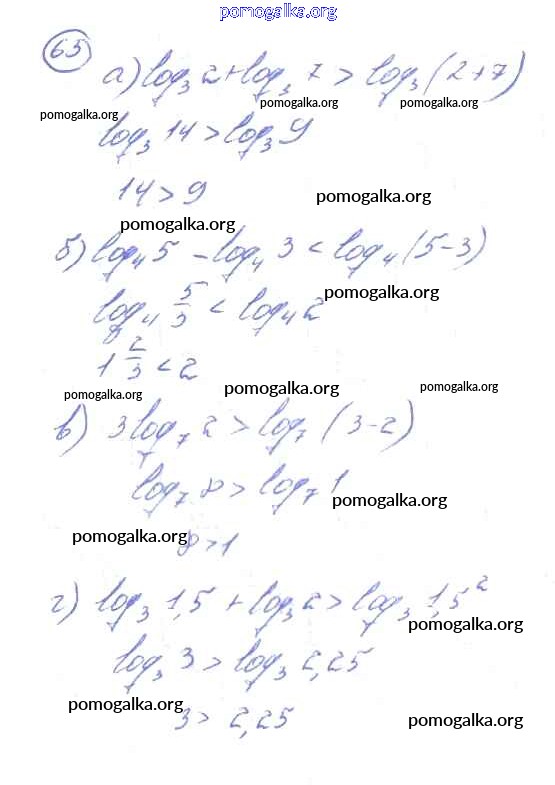 pomogalka.org
65
а) log₃ 2 + log₃ 7 > log₃ (2+7)
pomogalka.org pomogalka.org
pomogalka.org
log₃ 14 > log₃ 9
14 > 9
pomogalka.org
pomogalka.org
б) log₄ 5 - log₄ 3 < log₄ (5-3)
log₄ 5/3 < log₄ 2
pomogalka.org
1 2/3 < 2
pomogalka.org pomogalka.org pomogalka.org
в) 3log₇ 2 > log₇ (3-2)
log₇ 8 > log₇ 1
pomogalka.org
pomogalka.org
8 > 1
г) log₃ 1,5 + log₃ 2 > log₃ 1,5²
pomogalka.org
log₃ 3 > log₃ 2,25
pomogalka.org
3 > 2,25
pomogalka.org